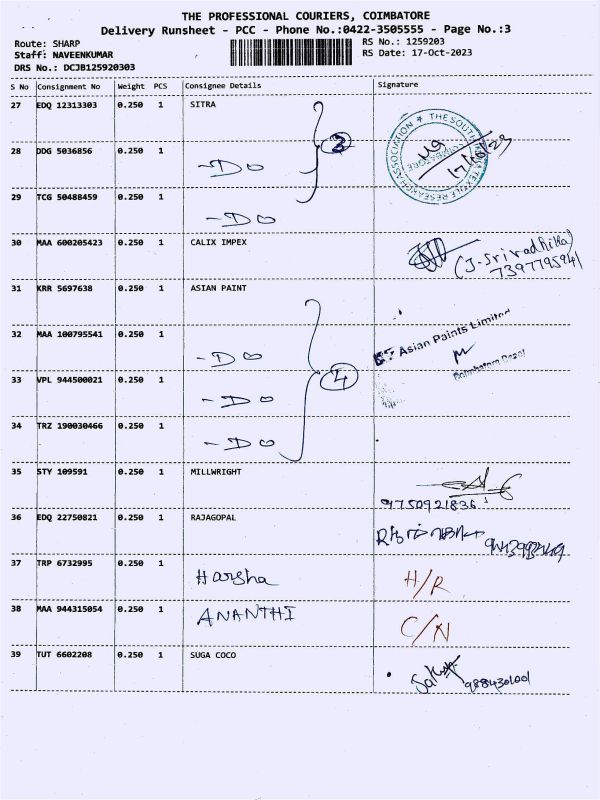 THE PROFESSIONAL COURIERS, COIMBATORE
Delivery Runsheet - PCC - Phone No.:0422-3505555 - Page No.:3
Route: SHARP RS No.: 1259203
Staff: NAVEENKUMAR RS Date: 17-Oct-2023
DRS No.: DCJB125920303
S No Consignment No Weight PCS Consignee Details Signature
27 EDQ 12313303 0.250 1 SITRA
28 DDG 5036856 0.250 1 -DO 3 17/10/23
29 TCG 50488459 0.250 1 -DO
30 MAA 600205423 0.250 1 CALIX IMPEX (J-Srivadhika)
7397795941
31 KRR 5697638 0.250 1 ASIAN PAINT
32 MAA 100795541 0.250 1 -DO Asian Paints Limited
33 VPL 944500021 0.250 1 -DO 4 Coimbatore Depot
34 TRZ 190030466 0.250 1 -DO
35 STY 109591 0.250 1 MILLWRIGHT 9750921836
36 EDQ 22750821 0.250 1 RAJAGOPAL
37 TRP 6732995 0.250 1 Harsha H/R
38 MAA 944315054 0.250 1 ANANTHI C/N
39 TUT 6602208 0.250 1 SUGA COCO 9884301001